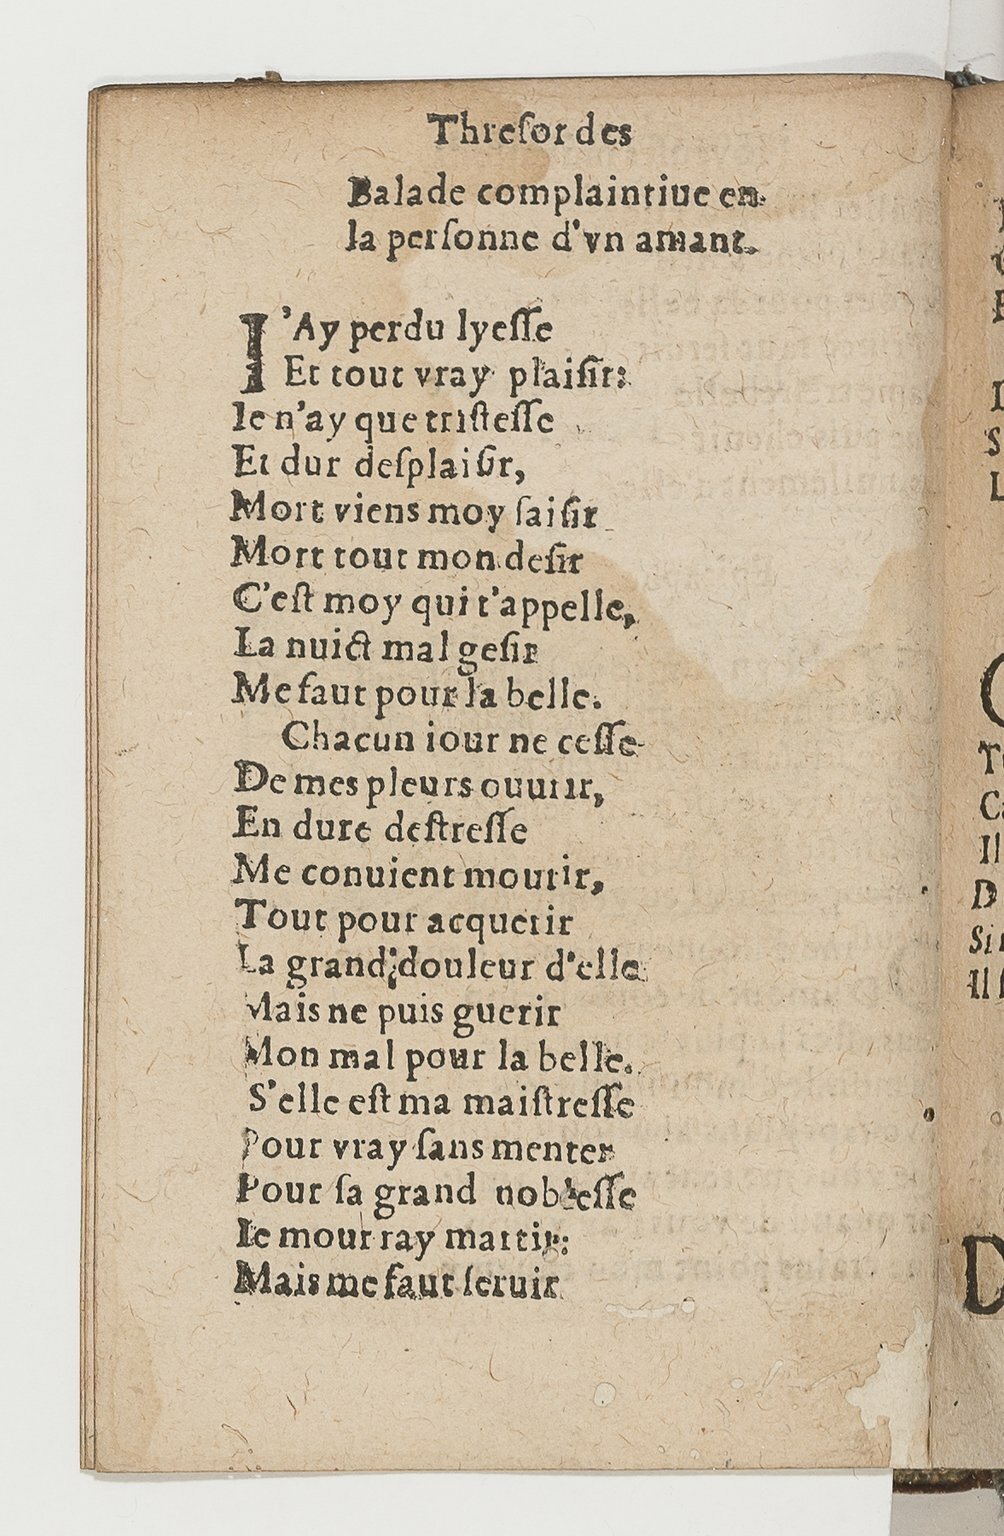 Threſor des
Balade complaintiue en
la perſonne d'vn amant.
I'Ay perdu lyeſſe
Et tout vray plaiſir:
Ie n'ay que triſteſſe
Et dur deſplaiſir,
Mort viens moy ſaiſir
Mort tout mon deſir
C'eſt moy qui t'appelle,
La nuict mal geſir
Me faut pour la belle.
Chacun iour ne ceſſe
De mes pleurs ouurir,
En dure deſtreſſe
Me conuient mourir,
Tout pour acquerir
La grand douleur d'elle
Mais ne puis guerir
Mon mal pour la belle.
S'elle eſt ma maiſtreſſe
Pour vray ſans menter
Pour ſa grand nobleſſe
Ie mourray martir:
Mais me faut ſeruir